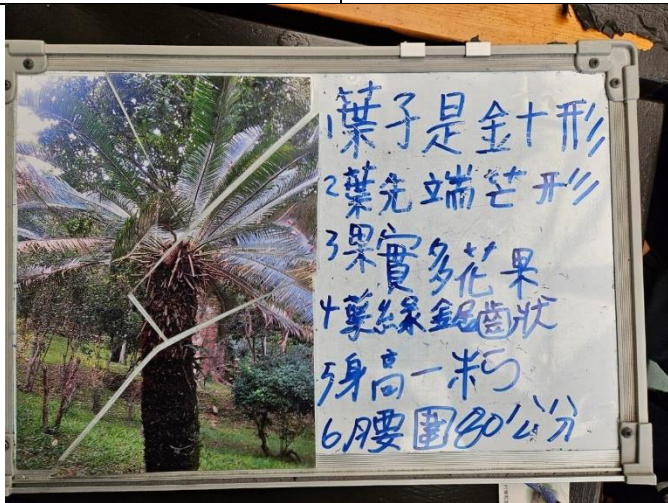 1葉子是針形
2葉先端芒形
3果實多花果
4葉緣鋸齒狀
5身高一米
6腰圍80公分